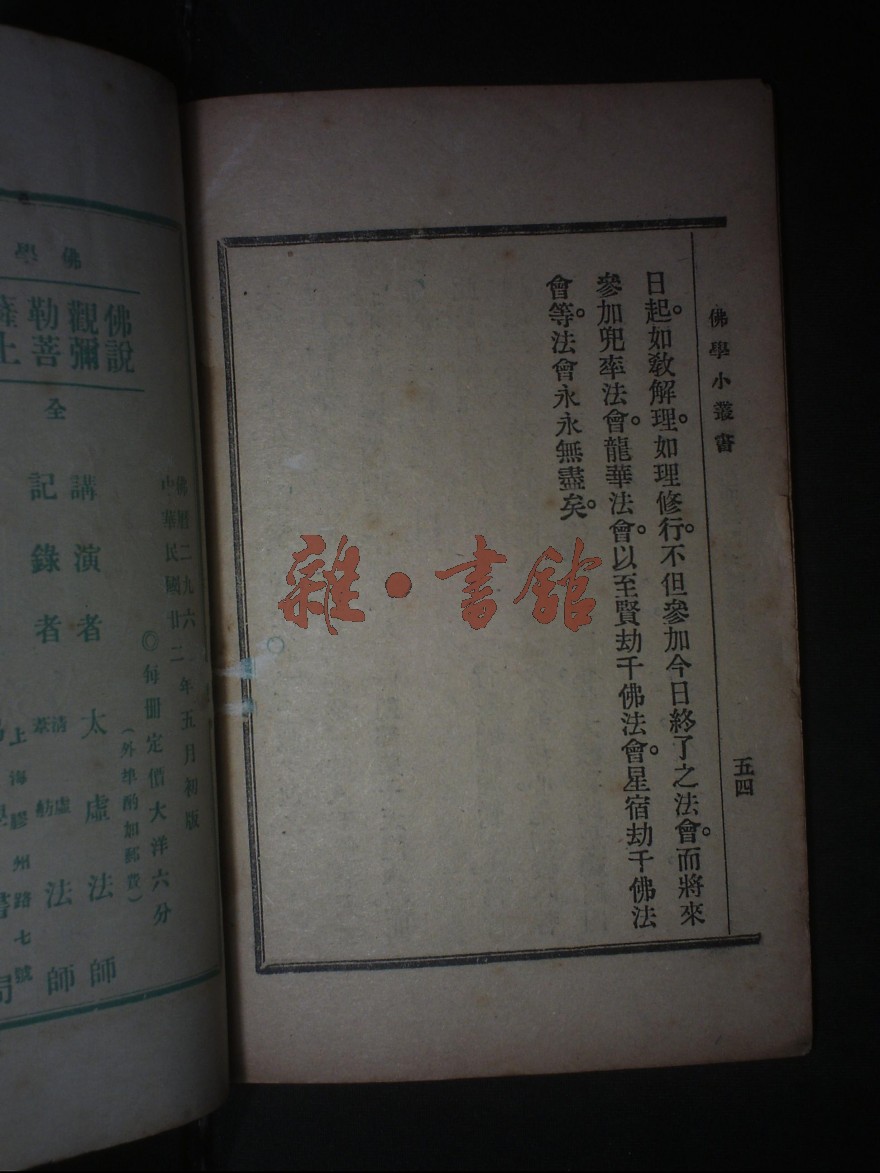 佛學小叢書
五四
日起。如敎解理。如理修行。不但參加今日終了之法會。而將來
參加兜率法會。龍華法會。以至賢劫千佛法會。星宿劫千佛法
會等。法會永永無盡矣。
雜·書館
佛曆二九六
中華民國廿二年五月初版
◎每冊定價大洋六分
(外埠酌加郵費)
學佛
佛說
觀彌
勒菩
薩上
全
講演者 太虛法師
記錄者 清虛
葦舫 法師
上海膠州路七號
學書局